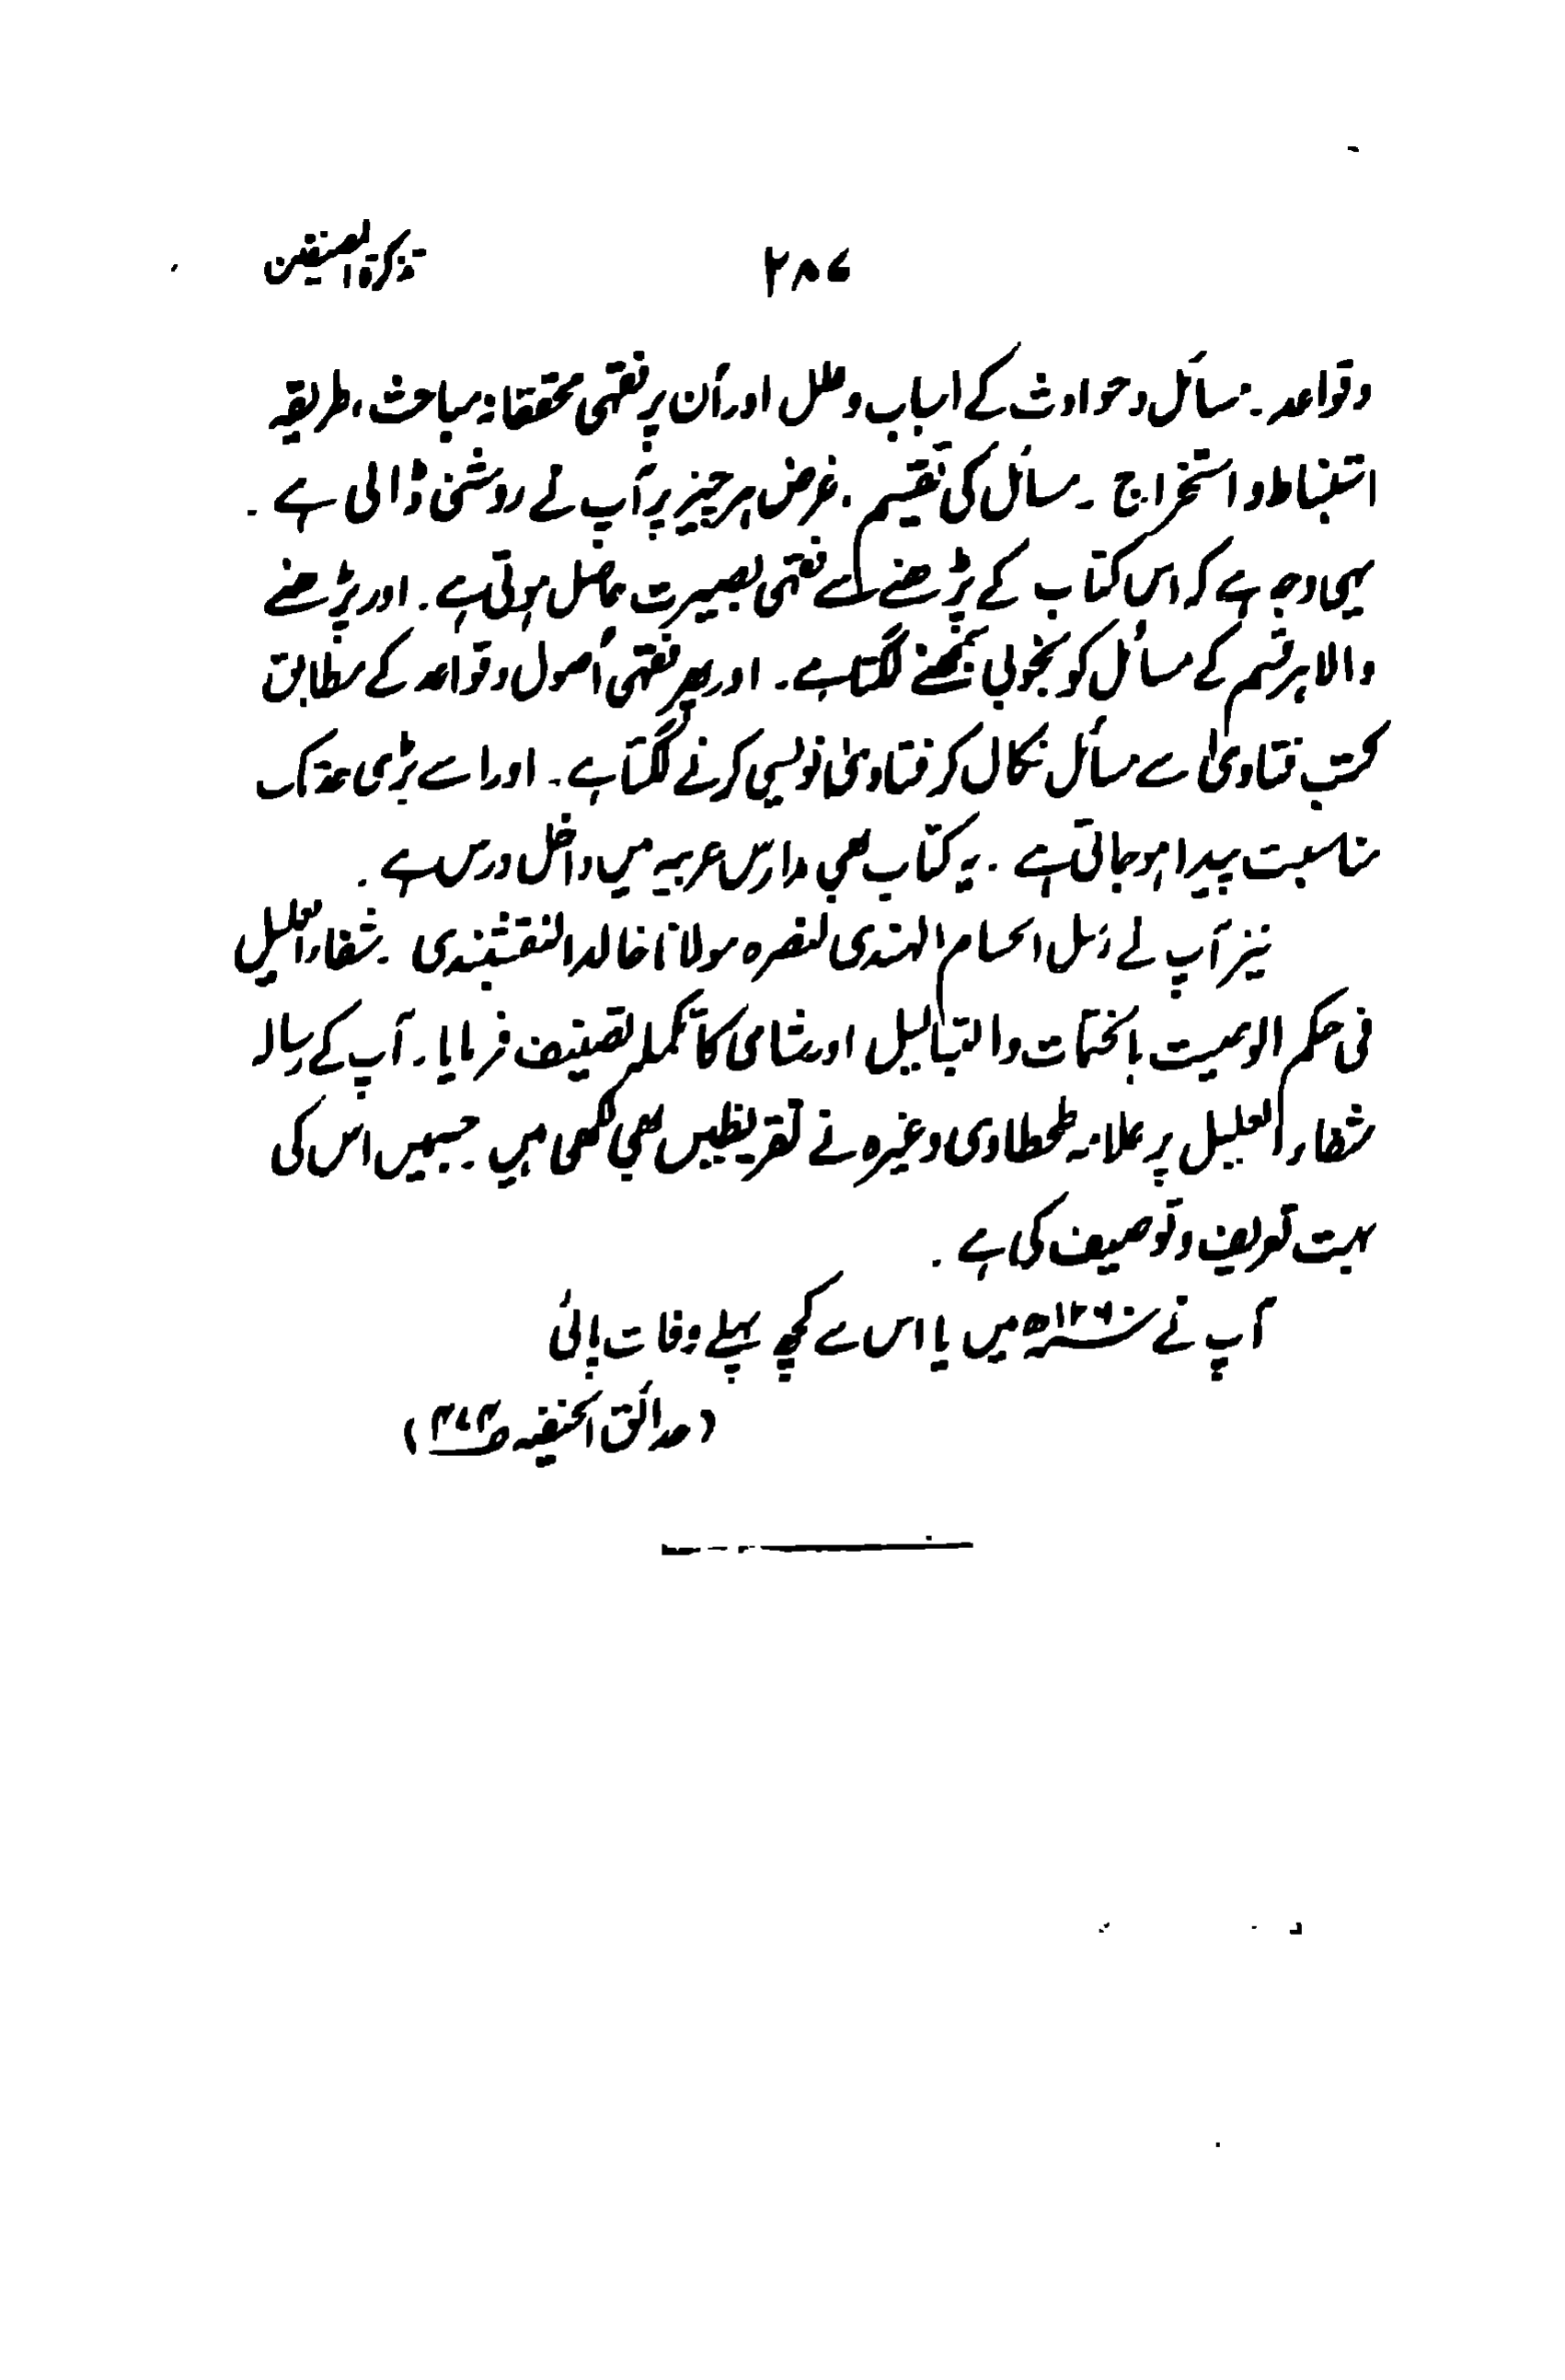 تذکرۃ المصنفین ۲۸۷
وقواعد ۔ مسائل وحوادث کے اسباب وعلل اور اُن پر فقہی محققانہ مباحث، طریقہ
استنباط واستخراج ۔ مسائل کی تقسیم ۔ غرض ہر چیز پر آپ نے روشنی ڈالی ہے ۔
یہی وجہ ہے کہ اس کتاب کے پڑھنے سے فقہی بصیرت حاصل ہوتی ہے ۔ اور پڑھنے
والا ہر قسم کے مسائل کو بخوبی سمجھنے لگتا ہے ۔ اور پھر فقہی اُصول وقواعد کے مطابق
کتب فتاویٰ سے مسائل نکال کر فتاویٰ نویسی کرنے لگتا ہے ۔ اور اسے بڑی حد تک
مناسبت پیدا ہو جاتی ہے ۔ یہ کتاب بھی مدارس عربیہ میں داخل درس ہے ۔
نیز آپ نے سَل الحسام الہندی لنصرہ مولانا خالد النقشبندی ۔ شفاء العلیل
فی حکم الوصیت بالختمات والتہالیل اور شامی کا تکملہ تصنیف فرمایا ۔ آپ کے رسالہ
شفاء العلیل پر علامہ طحطاوی وغیرہ نے تقریظیں بھی لکھی ہیں ۔ جسمیں اس کی
بہت تعریف وتوصیف کی ہے ۔
آپ نے ۱۲۶۰ھ میں یا اس سے کچھ پہلے وفات پائی
(حدائق الحنفیہ ص۴۷۴)